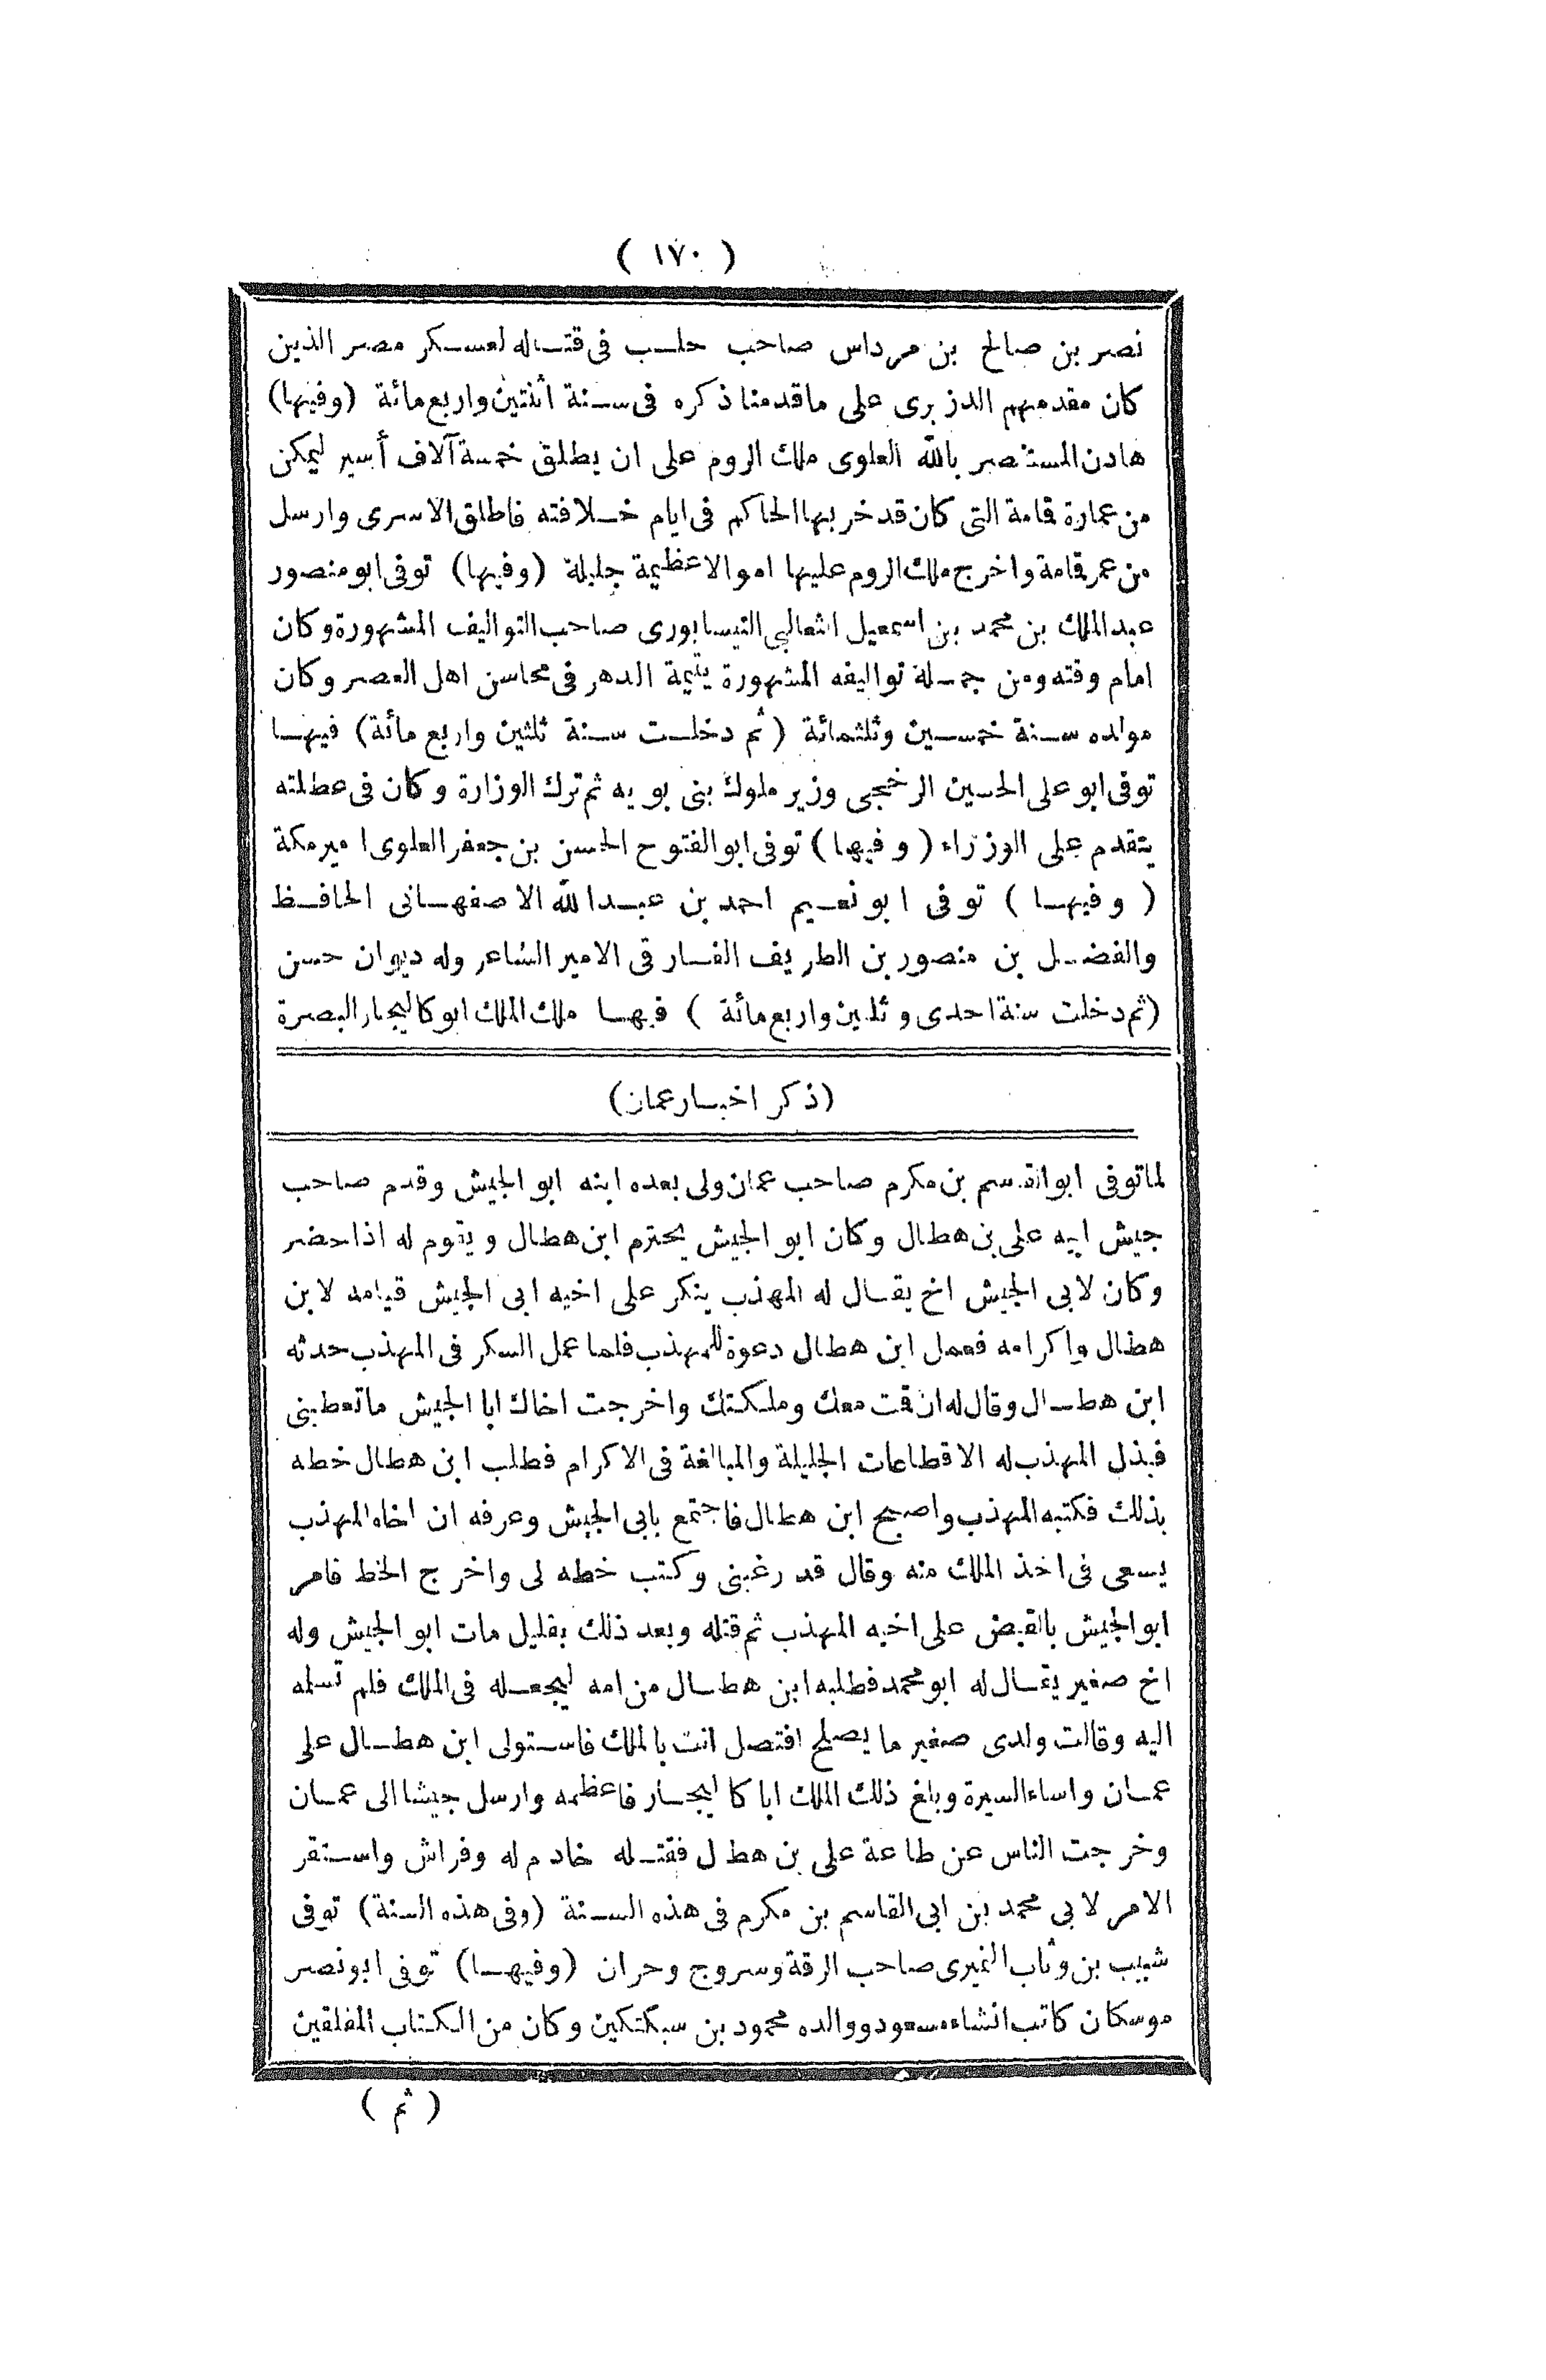 ( ١٧٠ )
نصر بن صالح بن مرداس صاحب حلب فى قتاله لعسكر مصر الذين
كان مقدمهم الدزبرى على ماقدمنا ذكره فى سنة اثنتين واربع مائة (وفيها)
هادن المستنصر بالله العلوى ملك الروم على ان يطلق خمسة آلاف أسير ليمكن
من عمارة قامة التى كان قد خربها الحاكم فى ايام خلافته فاطلق الاسرى وارسل
من عمر قامة واخرج ملك الروم عليها اموالا عظيمة جليلة (وفيها) توفى ابو منصور
عبد الملك بن محمد بن اسمعيل الثعالبى النيسابورى صاحب التواليف المشهورة وكان
امام وقته ومن جملة تواليفه المشهورة يتيمة الدهر فى محاسن اهل العصر وكان
مولده سنة خمسين وثلثمائة (ثم دخلت سنة ثلثين واربع مائة) فيها
توفى ابو على الحسين الرخجى وزير ملوك بنى بويه ثم ترك الوزارة وكان فى عطلته
يتقدم على الوزراء (وفيها) توفى ابو الفتوح الحسن بن جعفر العلوى امير مكة
(وفيها) توفى ابو نعيم احمد بن عبد الله الاصفهانى الحافظ
والفضل بن منصور بن الطريف الفارقى الامير الشاعر وله ديوان حسن
(ثم دخلت سنة احدى وثلثين واربع مائة) فيها ملك الملك ابو كاليجار البصرة
(ذكر اخبار عمان)
لما توفى ابو القاسم بن مكرم صاحب عمان ولى بعده ابنه ابو الجيش وقدم صاحب
جيش ابيه على بن هطال وكان ابو الجيش يحترم ابن هطال ويقوم له اذا حضر
وكان لابى الجيش اخ يقال له المهذب ينكر على اخيه ابى الجيش قيامه لابن
هطال واكرامه فعمل ابن هطال دعوة للمهذب فلما عمل السكر فى المهذب حدثه
ابن هطال وقال له ان قمت معك وملكتك واخرجت اخاك ابا الجيش ماتعطينى
فبذل المهذب له الاقطاعات الجليلة والمبالغة فى الاكرام فطلب ابن هطال خطه
بذلك فكتبه المهذب واصبح ابن هطال فاجتمع بابى الجيش وعرفه ان اخاه المهذب
يسعى فى اخذ الملك منه وقال قد رغبنى وكتب خطه لى واخرج الخط فامر
ابو الجيش بالقبض على اخيه المهذب ثم قتله وبعد ذلك بقليل مات ابو الجيش وله
اخ صغير يقال له ابو محمد فطلبه ابن هطال من امه ليجعله فى الملك فلم تسلمه
اليه وقالت ولدى صغير ما يصلح افتصل انت بالملك فاستولى ابن هطال على
عمان واساء السيرة وبلغ ذلك الملك ابا كاليجار فاعظمه وارسل جيشا الى عمان
وخرجت الناس عن طاعة على بن هطل فقتله خادم له وفراش واستقر
الامر لابى محمد بن ابى القاسم بن مكرم فى هذه السنة (وفى هذه السنة) توفى
شبيب بن وثاب النميرى صاحب الرقة وسروج وحران (وفيها) توفى ابو نصر
موسكان كاتب انشاء مسعود ووالده محمود بن سبكتكين وكان من الكتاب المفلقين
( ثم )